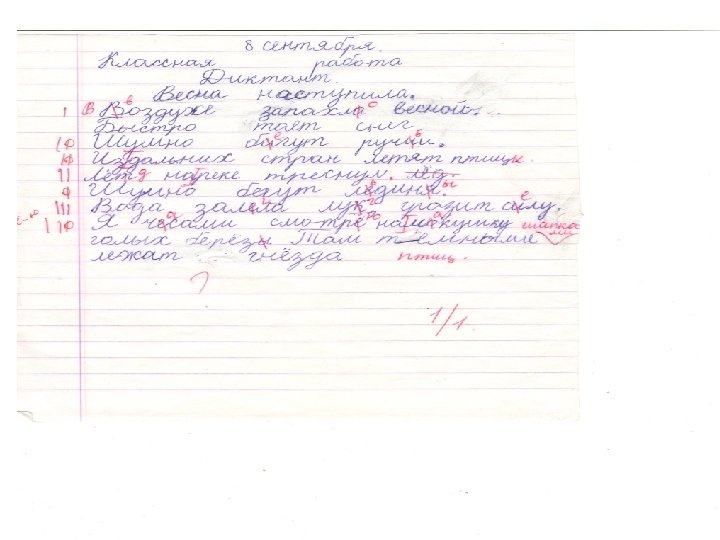 8 сентября.
Классная работа
Диктант.
Весна наступила.
В Воздухе запахла весной.
Быстро тает сниг
Шумно бигут ручии.
Издальних стран летят птицы.
Лёт на реке треснул.
Шумно бегут лдини.
Вода залела лук грозит силу.
Я чесами смотре на макушку шапка
голых берёзы Там тёмными
лежат гнёзда птиц.
1/1